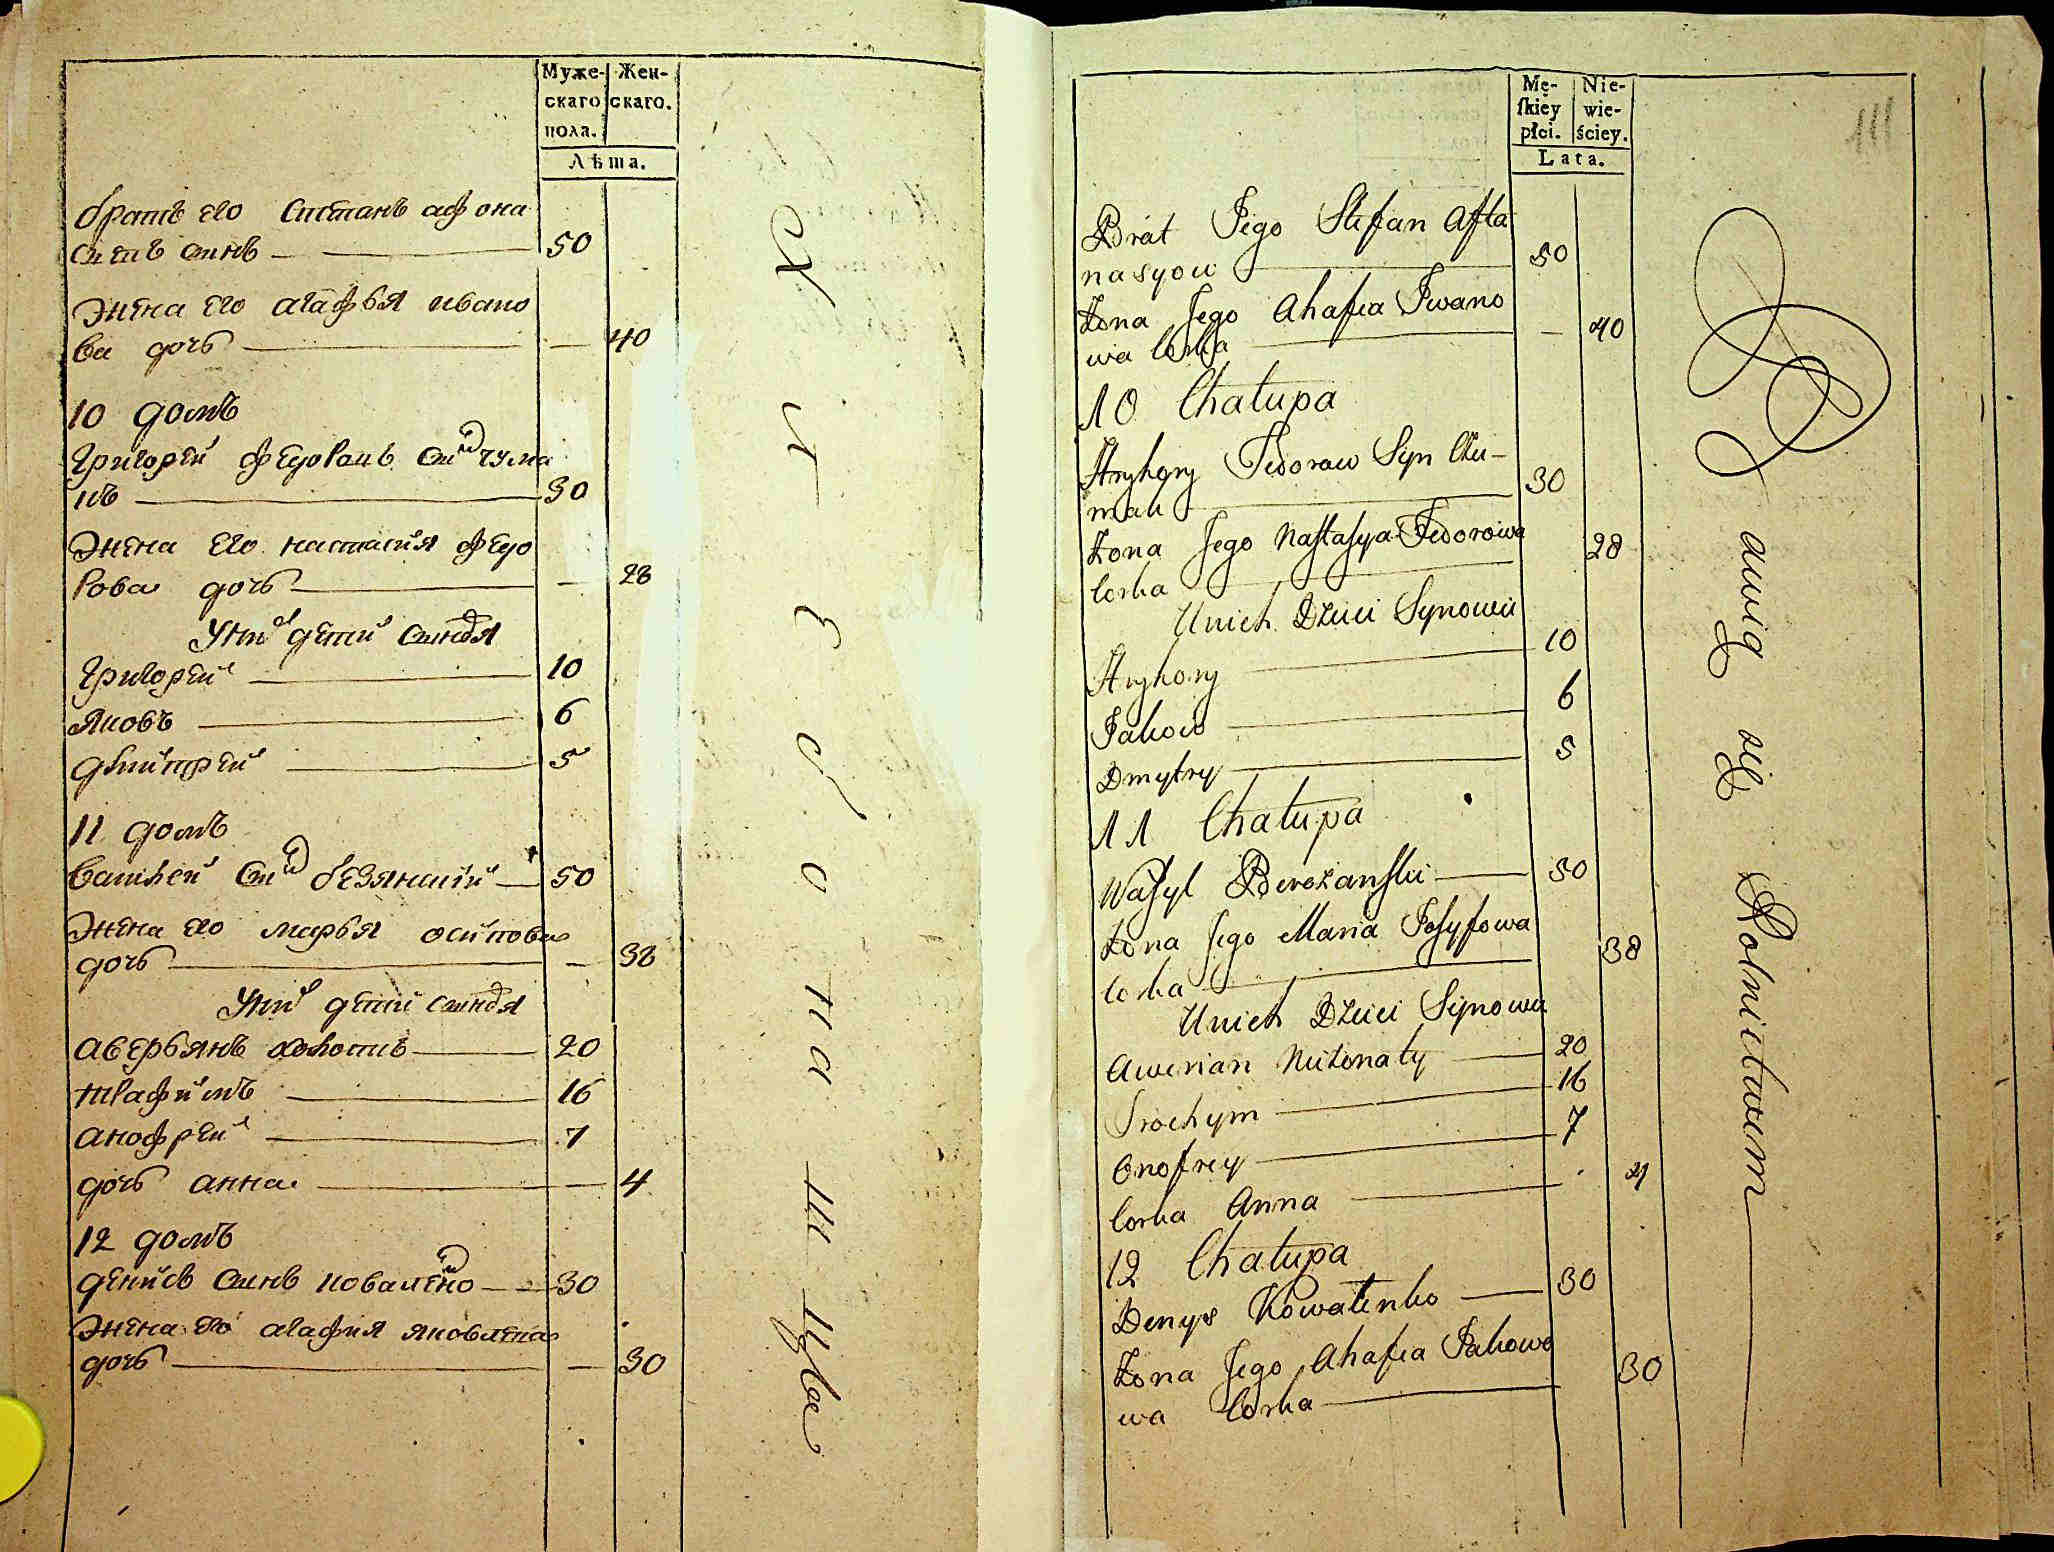 Муже-
скаго
пола.
Жен-
скаго.
Лѣта.
братъ его Степанъ афона
сиевъ синъ 50
жена его агафья ивано
ва дочь — 40
10 домъ
Григорей федоровъ син чума
къ 30
жена его настасия федо
рова дочь — 28
у них детей синовя
Григорей 10
Яковъ 6
дмитрей 5
11 домъ
Василей син безянский 50
жена его марья осипова
дочь — 38
у них детей синовя
аверьянъ холостъ 20
трафимъ 16
анофрей 7
дочь анна — 4
12 домъ
денисъ синъ коваленко 30
жена его агафия яковлева
дочь — 30
хлебопашцы
111
Mę-
skiey
płci.
Nie-
wie-
ściey.
Lata.
Brat Jego Stefan Afta
nasyow 50
Żona Jego Ahafia Iwano
wa Corka — 40
10 Chałupa
Hryhory Fedoraw Syn Czu-
mak 30
Żona Jego Nastasya Fedorowa
Corka 28
U nich Dzieci Synowie
Hryhory 10
Jakow 6
Dmytry 5
11 Chałupa
Wasyl Berezanski 50
Żona Jego Maria Josyfowa
Corka 38
U nich Dzieci Synowie
Awerian Nieżonaty 20
Trochym 16
Onofrey 7
Corka Anna 4
12 Chałupa
Denys Kowalenko 30
Żona Jego Ahafia Jakowo
wa Corka 30
Bawią się Rolnictwem